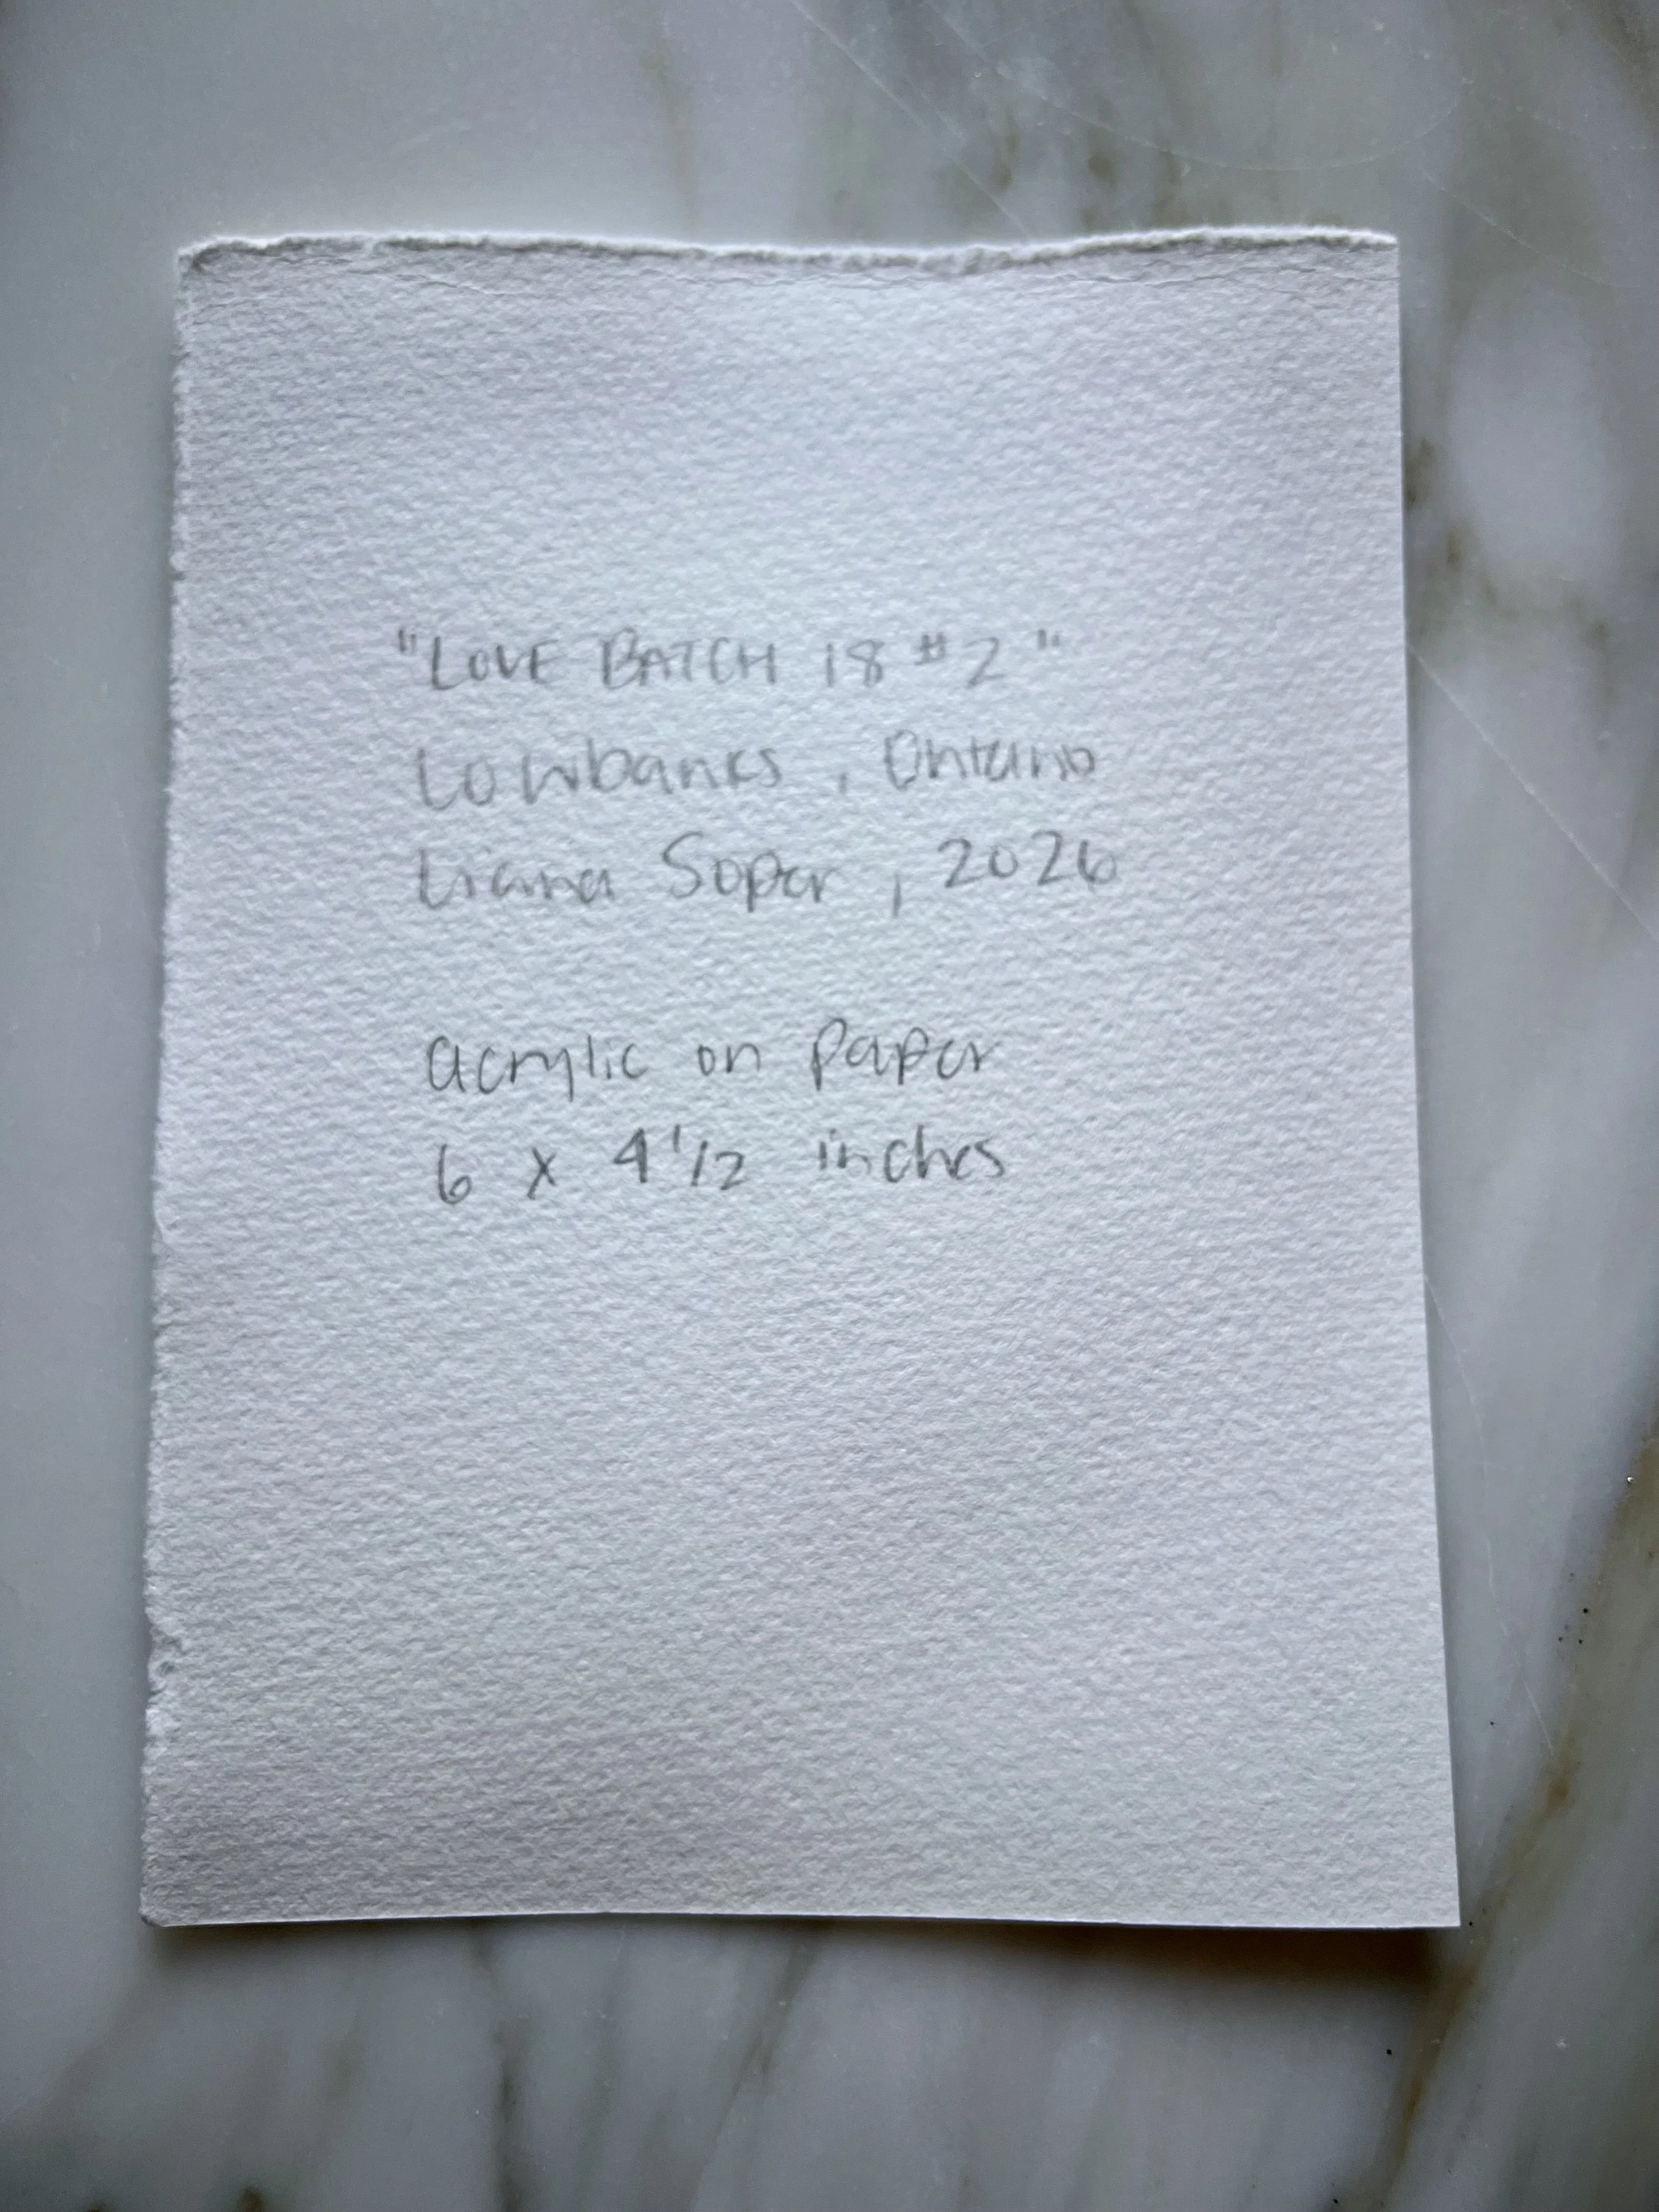 "LOVE BATCH 18 #2"
Lowbanks, Ontario
Liana Soper, 2026
acrylic on paper
6 x 4 1/2 inches